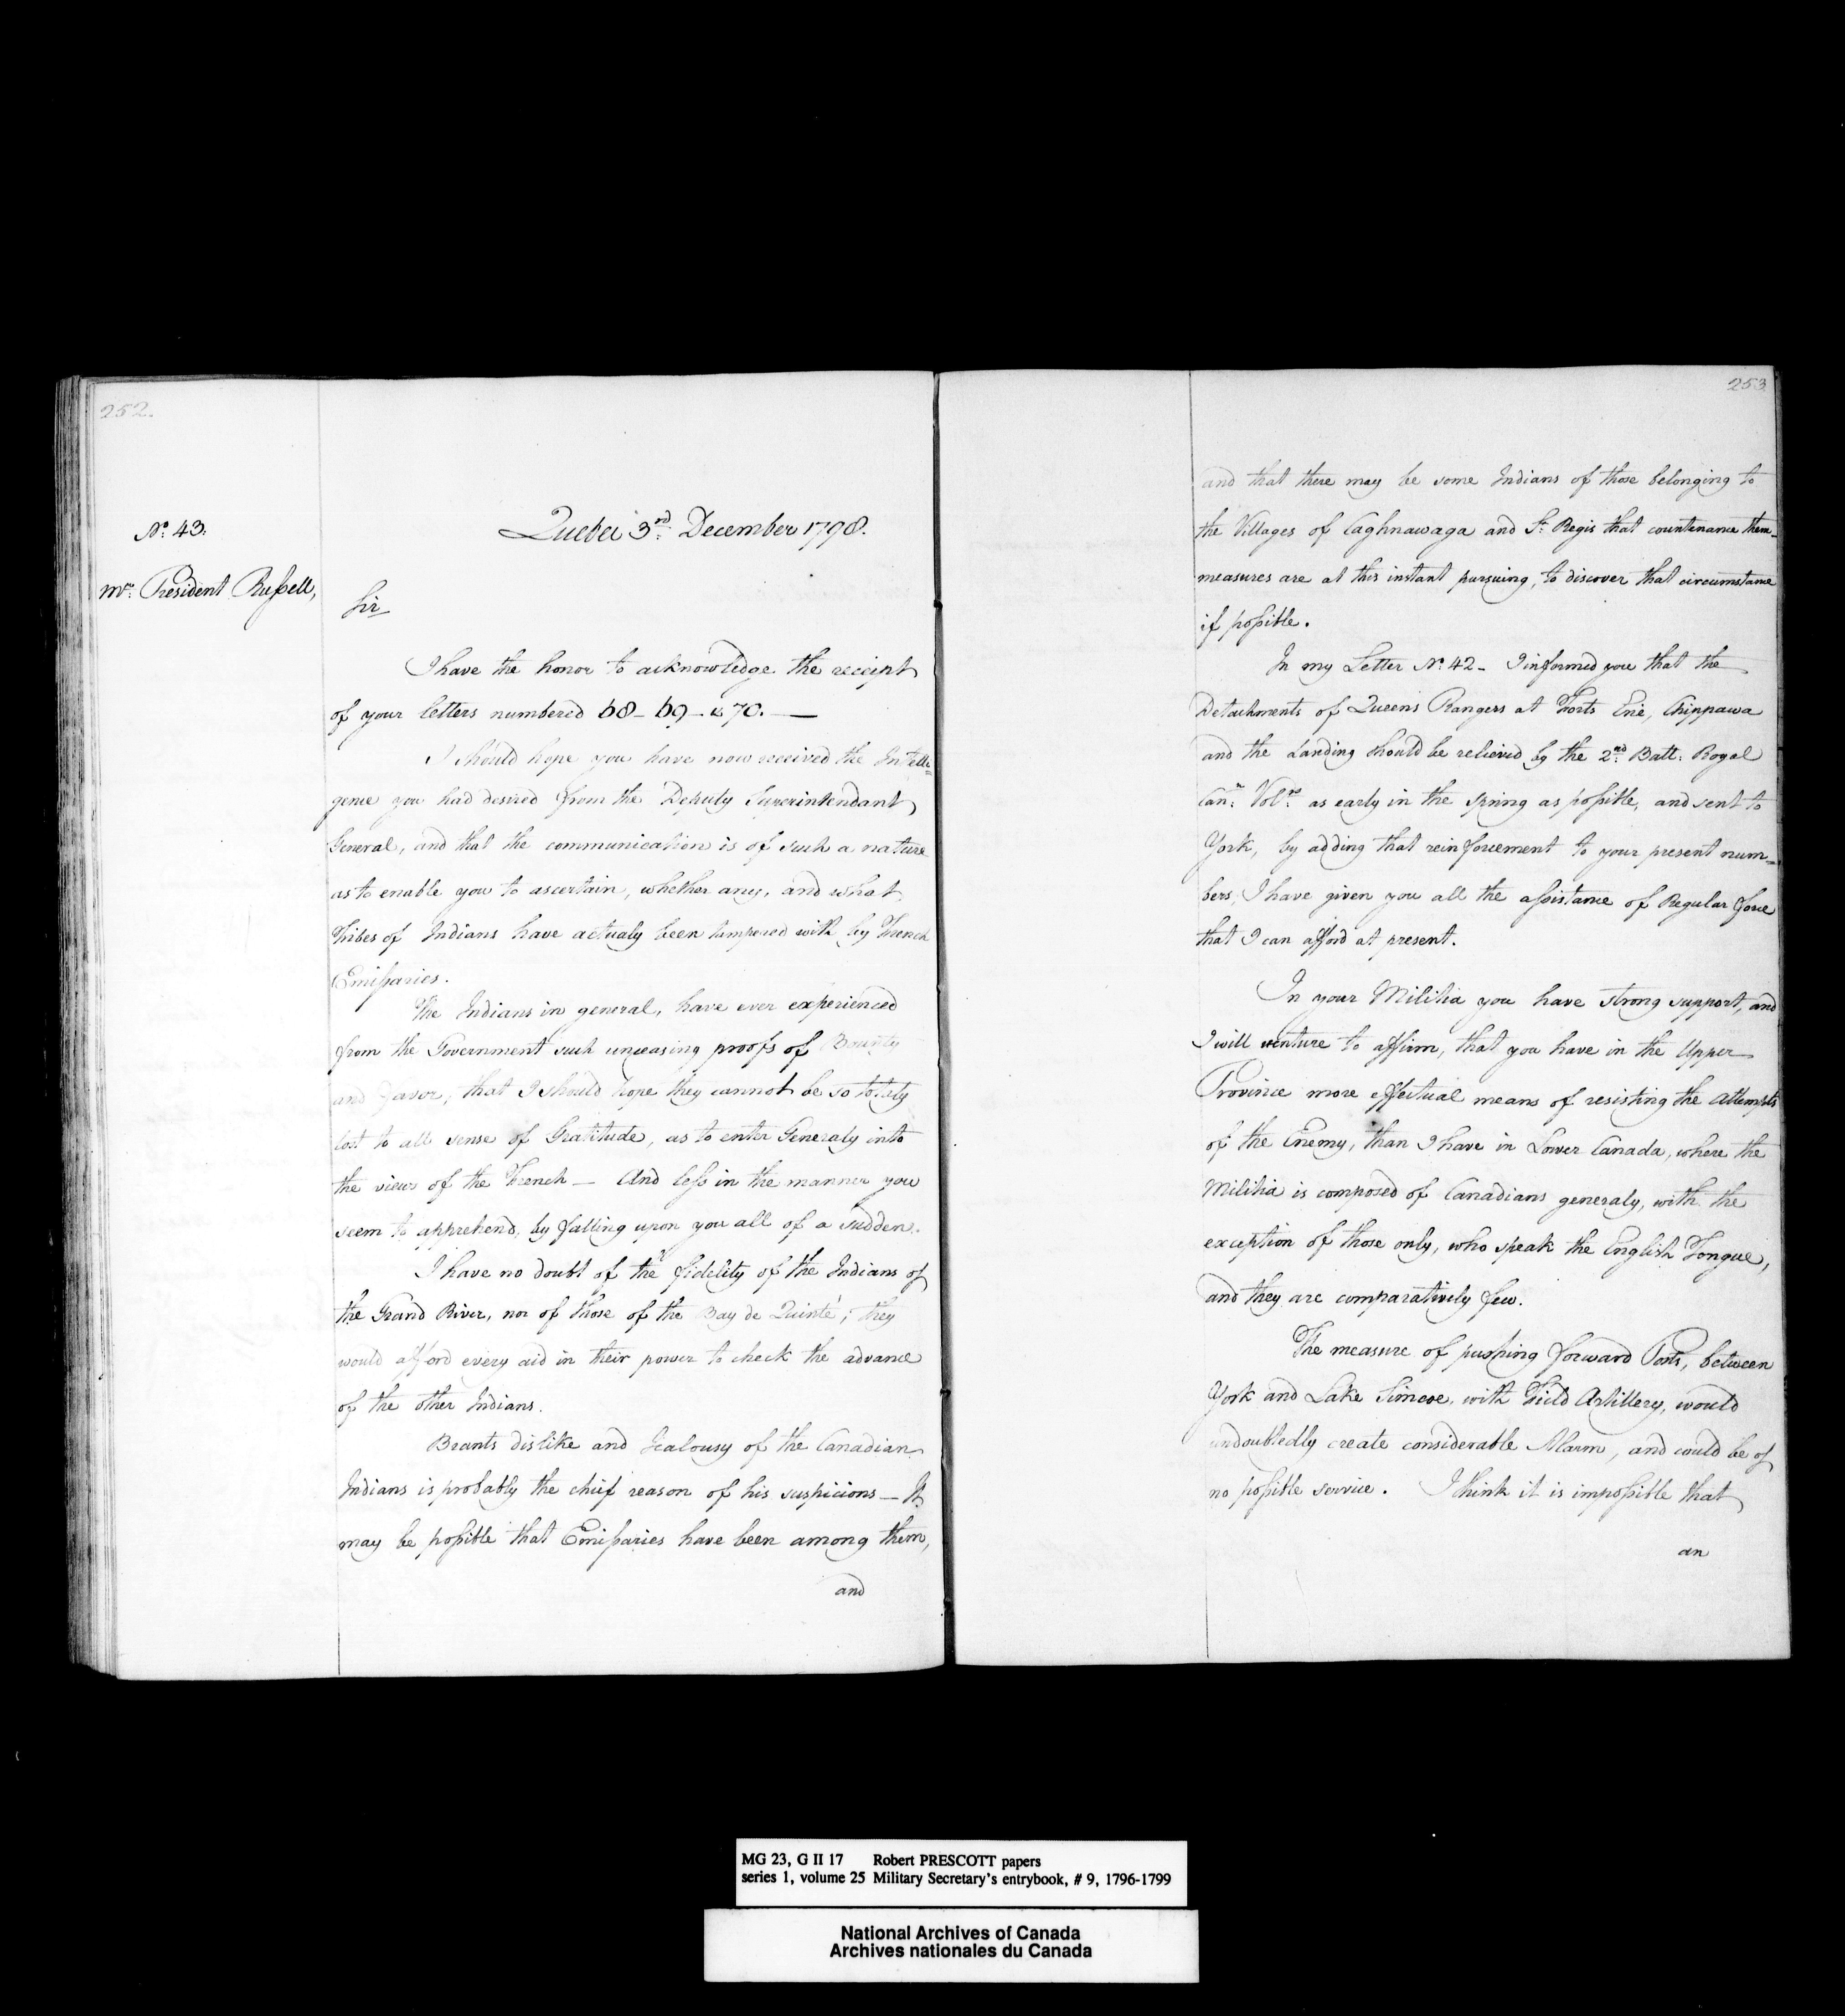 252.
Nº. 43.
Mr. President Russell,
Quebec 3rd. December 1798.
Sir
I have the honor to acknowledge the receipt
of your letters numbered 68 - 69 - & 70. —
I should hope you have now received the Intelli=
gence you had desired from the Deputy Superintendant
General, and that the communication is of such a nature
as to enable you to ascertain, whether any, and what
Tribes of Indians have actualy been tampered with by French
Emissaries.
The Indians in general, have ever experienced
from the Government such unceasing proofs of Bounty
and favor, that I should hope they cannot be so totaly
lost to all sense of Gratitude, as to enter Generaly into
the views of the French — And less in the manner you
seem to apprehend, by falling upon you all of a sudden.
I have no doubt of the fidelity of the Indians of
the Grand River, nor of those of the Bay de Quinté; they
would afford every aid in their power to check the advance
of the other Indians.
Brants dislike and Jealousy of the Canadian
Indians is probably the chief reason of his suspicions — It
may be possible that Emissaries have been among them,
and
253
and that there may be some Indians of those belonging to
the Villages of Caghnawaga and St. Regis that countenance them—
measures are at this instant pursuing, to discover that circumstance
if possible.
In my Letter Nº. 42 - I informed you that the
Detachments of Queens Rangers at Forts Erie, Chippawa
and the Landing should be relieved by the 2nd. Batt: Royal
Cann. Volrs. as early in the spring as possible, and sent to
York, by adding that reinforcement to your present num=
bers, I have given you all the assistance of Regular force
that I can afford at present.
In your Militia you have strong support, and
I will venture to affirm, that you have in the Upper
Province more effectual means of resisting the Attempts
of the Enemy, than I have in Lower Canada, where the
Militia is composed of Canadians generaly, with the
exception of those only, who speak the English Tongue,
and they are comparatively few.
The measure of pushing forward Posts, between
York and Lake Simcoe, with Field Artillery, would
undoubtedly create considerable Alarm, and could be of
no possible service. I think it is impossible that
an
MG 23, G II 17 Robert PRESCOTT papers
series 1, volume 25 Military Secretary's entrybook, # 9, 1796-1799
National Archives of Canada
Archives nationales du Canada